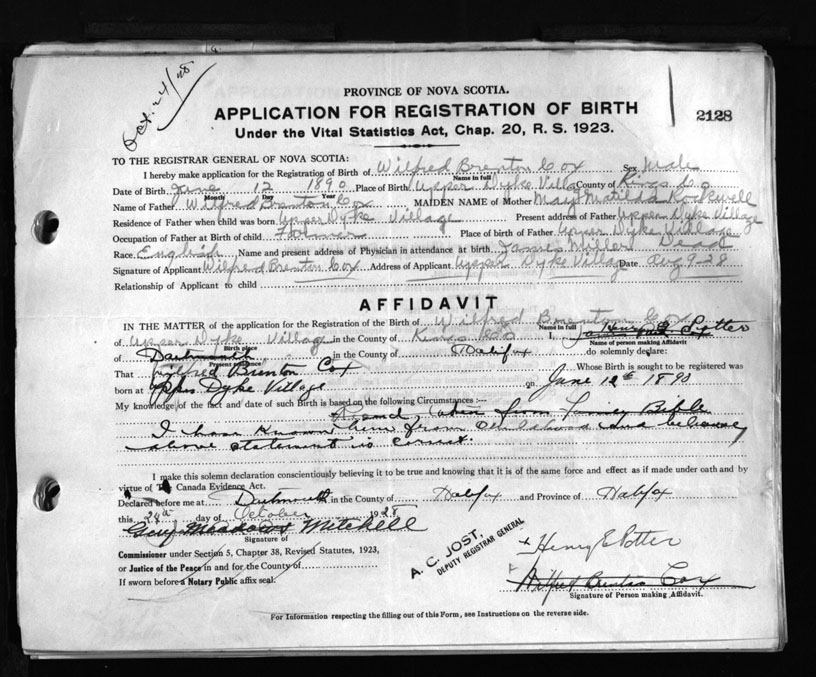 Oct. 24/28
PROVINCE OF NOVA SCOTIA.
APPLICATION FOR REGISTRATION OF BIRTH
2128
Under the Vital Statistics Act, Chap. 20, R. S. 1923.
TO THE REGISTRAR GENERAL OF NOVA SCOTIA:
I hereby make application for the Registration of Birth of Wilfred Brenton Cox Sex Male
Name in full
Date of Birth June 12 1890 Place of Birth Upper Dyke Village County of Kings Co
Month Day Year
Name of Father Wilfred Brenton Cox MAIDEN NAME of Mother Mary Matilda Rockwell
Residence of Father when child was born Upper Dyke Village Present address of Father Upper Dyke Village
Occupation of Father at Birth of child Place of birth of Father Upper Dyke Village
Race English Name and present address of Physician in attendance at birth James Miller Dead
Signature of Applicant Wilfred Brenton Cox Address of Applicant Upper Dyke Village Date Aug 9-28
Relationship of Applicant to child
AFFIDAVIT
IN THE MATTER of the application for the Registration of the Birth of Wilfred Brenton Cox
Name in full
of Upper Dyke Village in the County of Kings Co I, Henry E Potter
Birth place Name of person making Affidavit
of Dartmouth in the County of Halifax do solemnly declare:
Present residence
That Wilfred Brenton Cox Whose Birth is sought to be registered was
born at Upper Dyke Village on June 12th 1890
My knowledge of the fact and date of such Birth is based on the following Circumstances :—
Record, taken from Family Bible
I have known him from childhood and believe
above statement is correct.
I make this solemn declaration conscientiously believing it to be true and knowing that it is of the same force and effect as if made under oath and by
virtue of The Canada Evidence Act.
Declared before me at Dartmouth in the County of Halifax and Province of Halifax
this 24th day of October 1928
Guy Meadows Mitchell
Signature of
Commissioner under Section 5, Chapter 38, Revised Statutes, 1923,
or Justice of the Peace in and for the County of
If sworn before a Notary Public affix seal.
A. C. JOST,
DEPUTY REGISTRAR GENERAL
x Henry E Potter
Wilfred Brenton Cox
Signature of Person making Affidavit.
For Information respecting the filling out of this Form, see Instructions on the reverse side.